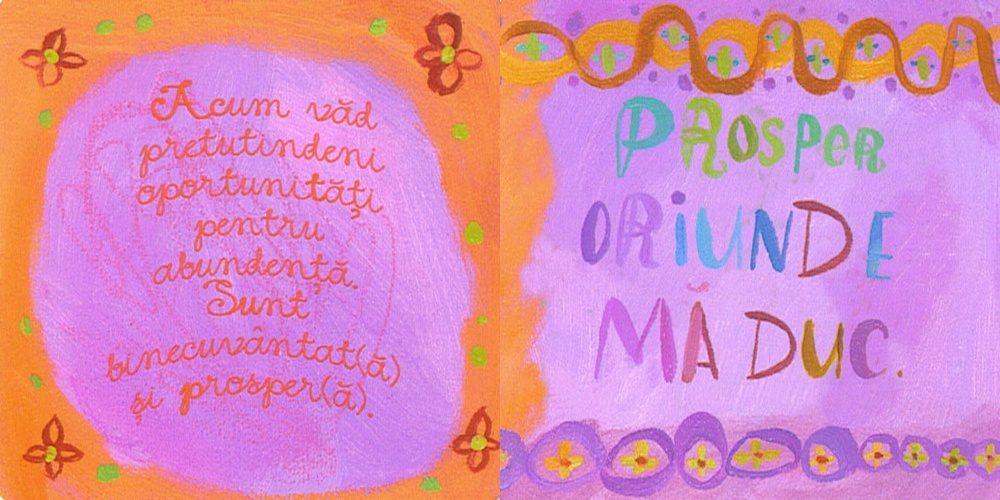 Acum văd
pretutindeni
oportunități
pentru
abundență.
Sunt
binecuvântat(ă)
și prosper(ă).
PROSPER
ORIUNDE
MĂ DUC.